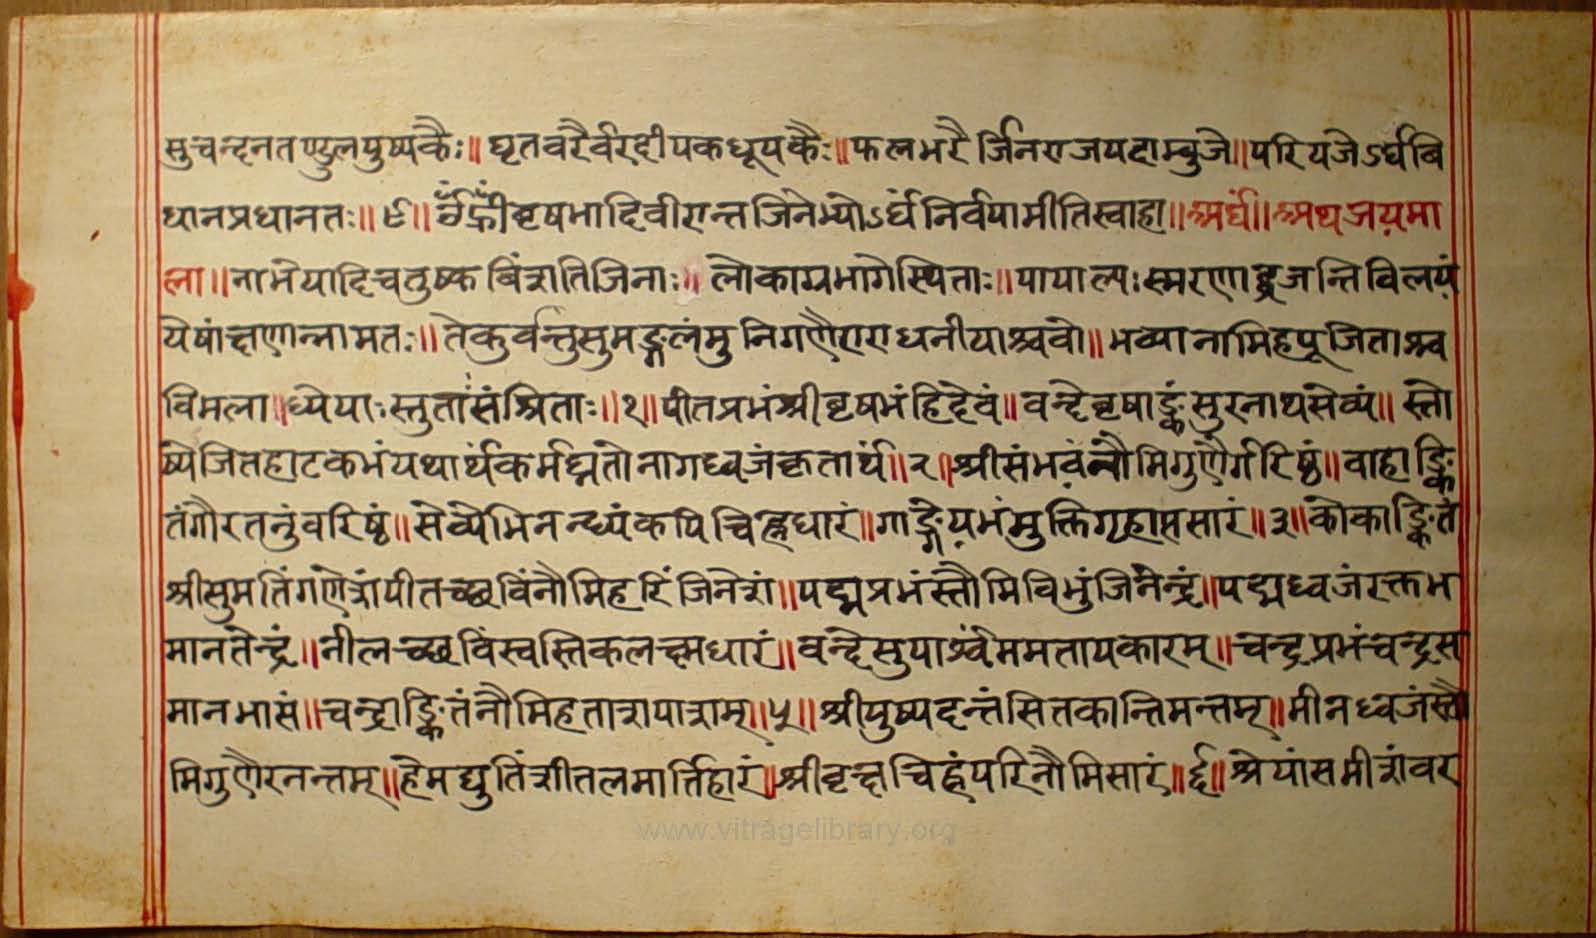 सुचन्दनतण्डुलपुष्पकैः॥घृतवरैर्वरदीपकधूपकैः॥फलभरैर्जिनराजपदाम्बुजे॥परियजेऽर्घवि
धानप्रधानतः॥९॥ॐह्रीँवृषभादिवीरान्तजिनेभ्योऽर्घंनिर्वपामीतिस्वाहा॥अर्घं॥अथजयमा
ला॥नाभेयादिचतुष्कविंशतिजिनाः॥लोकाग्रभागेस्थिताः॥पापाल्पःस्मरणाद्व्रजन्तिविलयं
येषांक्षणान्नामतः॥तेकुर्वन्तुसुमङ्गलंमुनिगणैराराधनीयाश्चवो॥भव्यानामिहपूजिताश्च
विमला॥ध्येयाःस्तुतांसंश्रिताः॥१॥पीतप्रभंश्रीवृषभंहिदेवं॥वन्देवृषाङ्कंसुरनाथसेव्यं॥स्तो
ष्येजितहाटकभंयथार्थंकर्मघ्नतोनागध्वजंकृतार्थं॥२॥श्रीसंभवंनौमिगुणैर्गरिष्ठं॥वाहाङ्कि
तंगौरतनुंवरिष्ठं॥सेव्येभिनन्द्यंकपिचिह्नधारं॥गाङ्गेयभंमुक्तिगृहाप्तसारं॥३॥कोकाङ्कितं
श्रीसुमतिंगणेशंपीतच्छविंनौमिहरिंजिनेशं॥पद्मप्रभंस्तौमिविभुंजिनेन्द्रं॥पद्मध्वजंरक्तभ
मानतेन्द्रं॥नीलच्छविंस्वस्तिकलक्ष्मधारं॥वन्देसुपार्श्वंममतापकारम्॥चन्द्रप्रभंचन्द्रस
मानभासं॥चन्द्राङ्कितंनौमिहताशपाशम्॥५॥श्रीपुष्पदन्तंसितकान्तिमन्तम्॥मीनध्वजंस्तौ
मिगुणैरनन्तम्॥हेमद्युतिंशीतलमार्त्तिहारं॥श्रीवृक्षचिह्नंपरिनौमिसारं॥६॥श्रेयांसमीशंवर
www.vitragelibrary.org